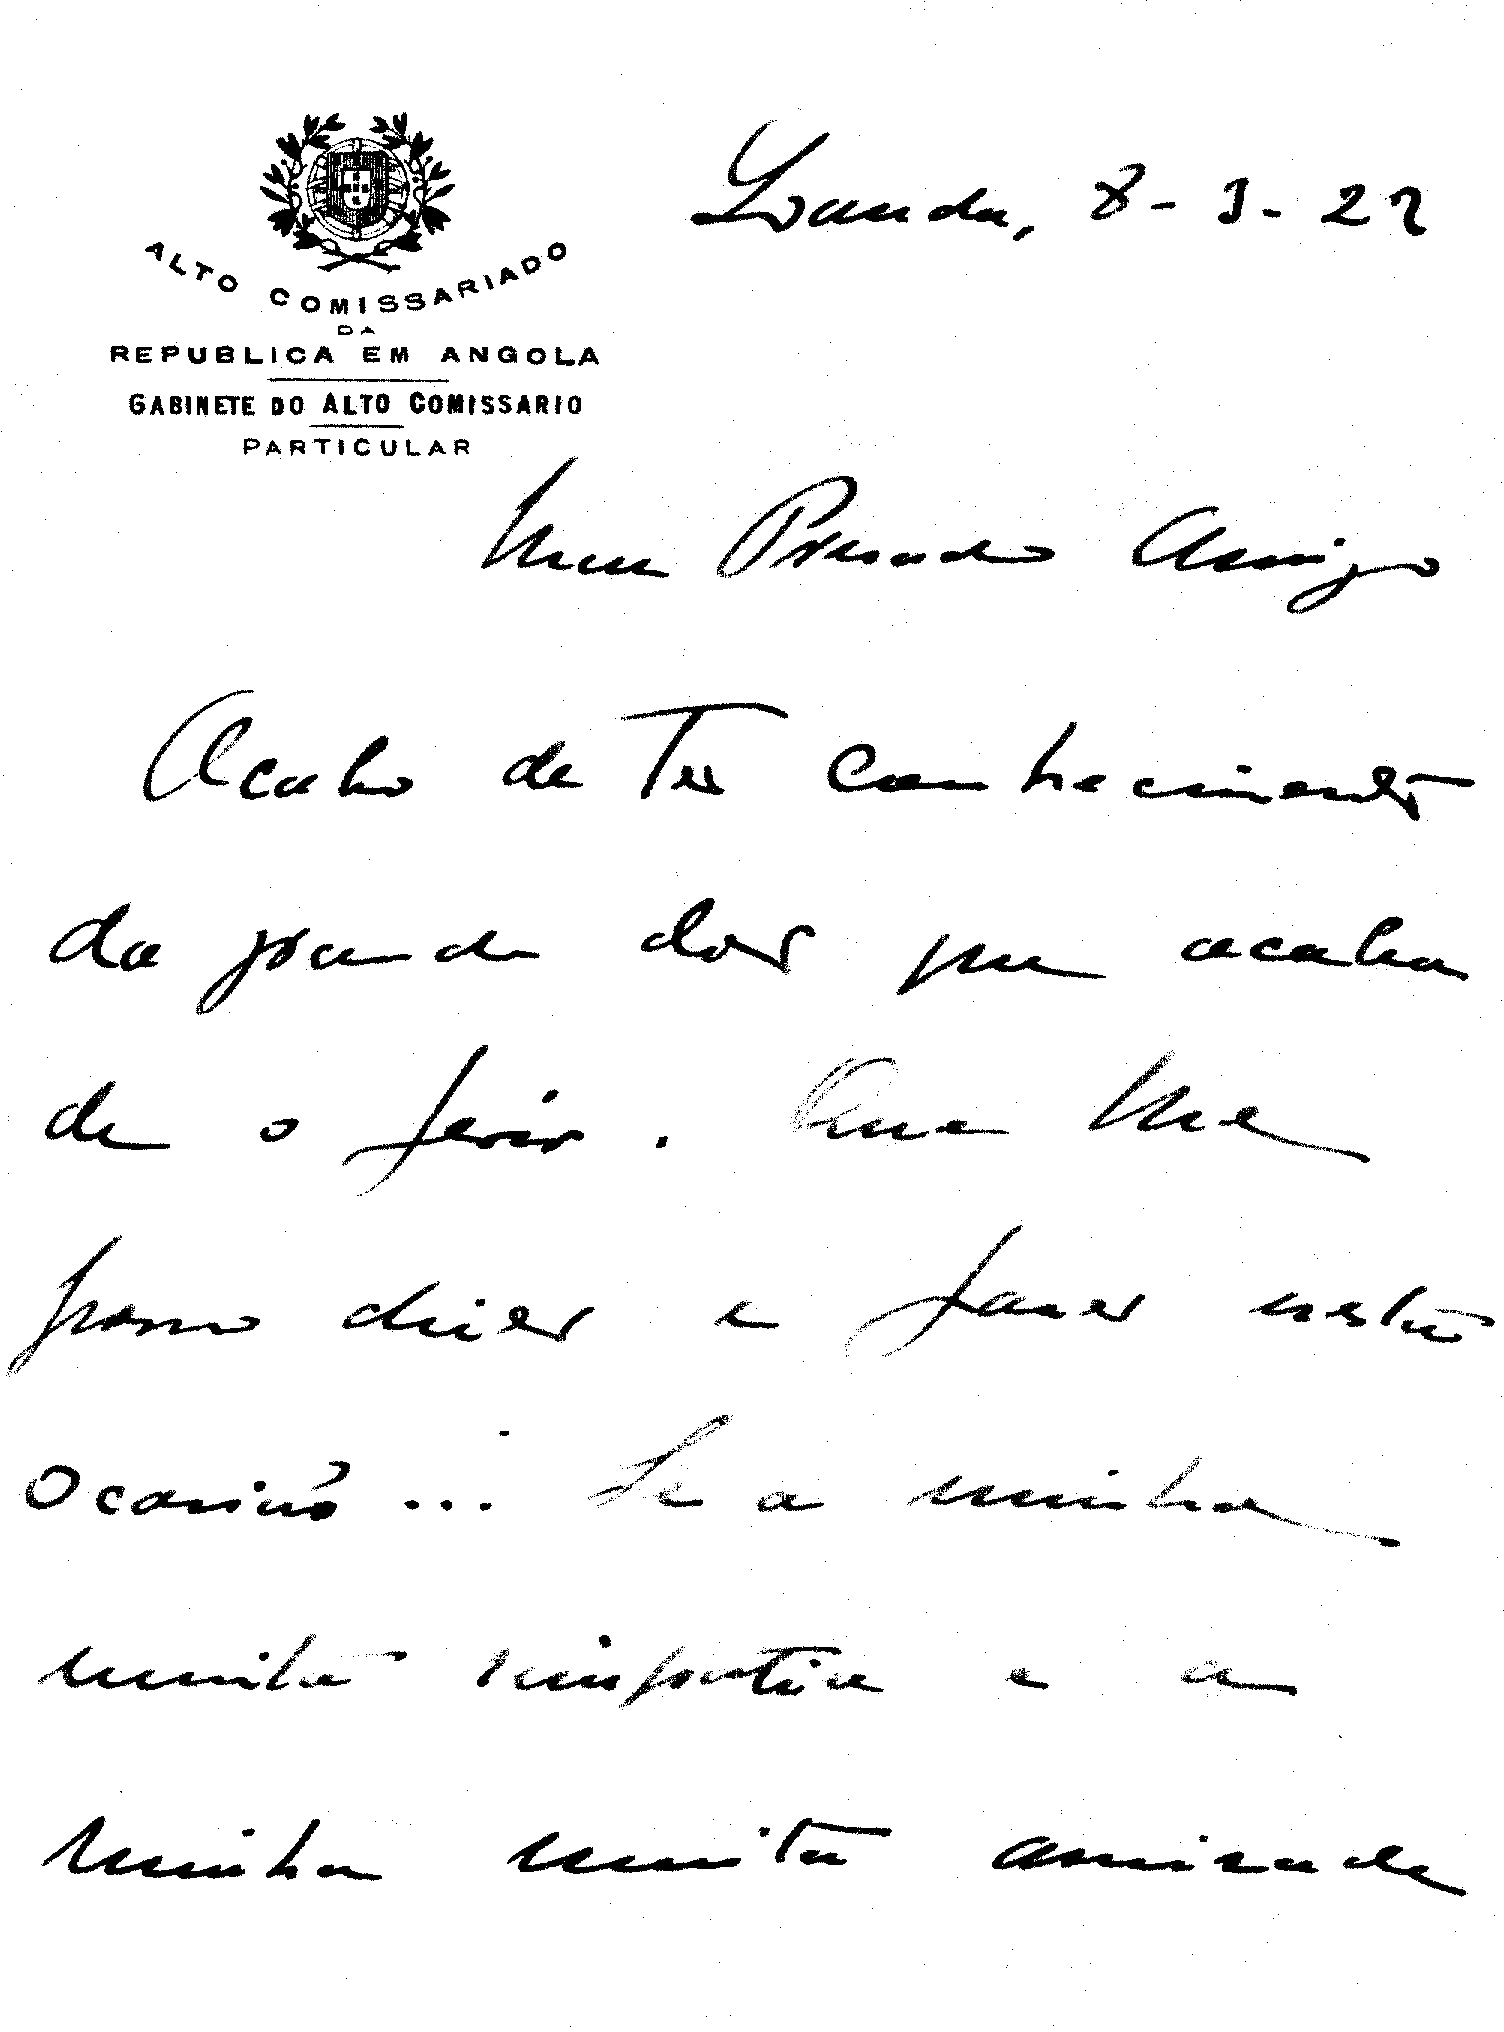 ALTO COMISSARIADO
DA
REPUBLICA EM ANGOLA
GABINETE DO ALTO COMISSARIO
PARTICULAR
Loanda, 8-3-22
Meu Presado Amigo
Acabo de Ter conhecimento
da grande dor que acaba
de o ferir. Que lhe
posso dizer e fazer nesta
Ocasião... Se a minha
muita simpatia e a
minha muita amisade